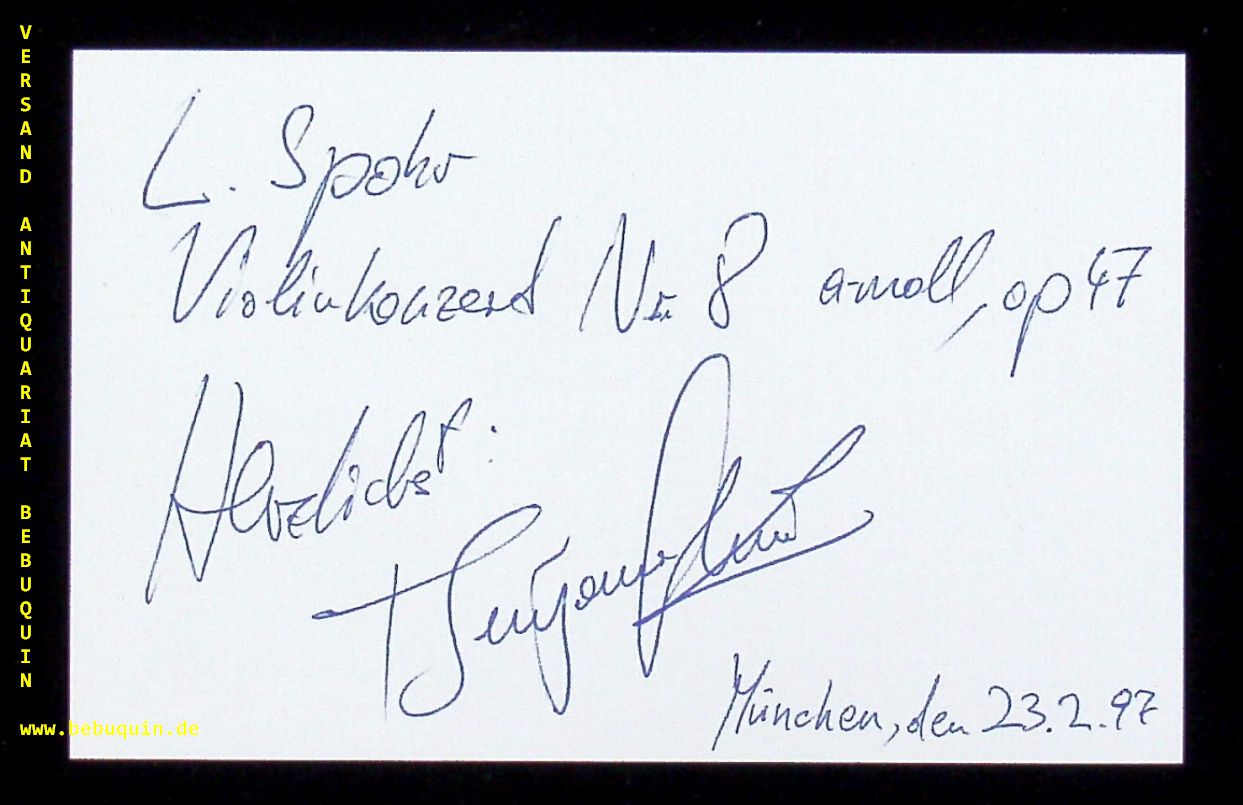 L. Spohr
Violinkonzert Nr. 8 a-moll, op 47
Herzlichst:
Benjamin
München, den 23.2.97
VERSAND ANTIQUARIAT BEBUQUIN
www.bebuquin.de